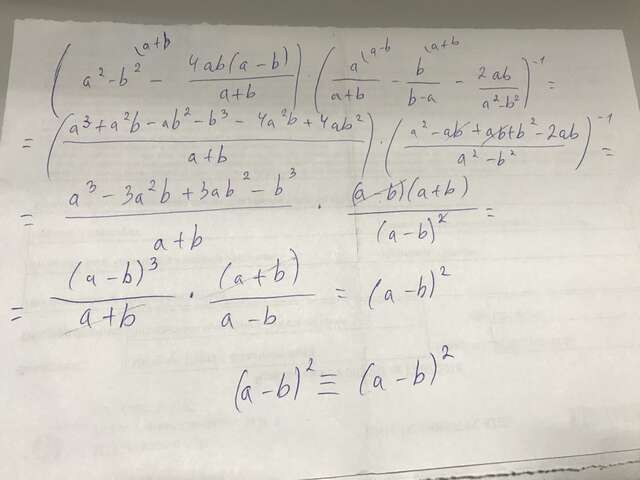 (a² - b² \a+b - 4ab(a-b)/a+b) · (a \a-b/a+b - b \a+b/b-a - 2ab/a²-b²)⁻¹ =
= (a³ + a²b - ab² - b³ - 4a²b + 4ab²/a+b) · (a² - ab + ab + b² - 2ab/a² - b²)⁻¹ =
= a³ - 3a²b + 3ab² - b³/a+b · (a-b)(a+b)/(a-b)² =
= (a-b)³/a+b · (a+b)/a-b = (a-b)²
(a-b)² ≡ (a-b)²